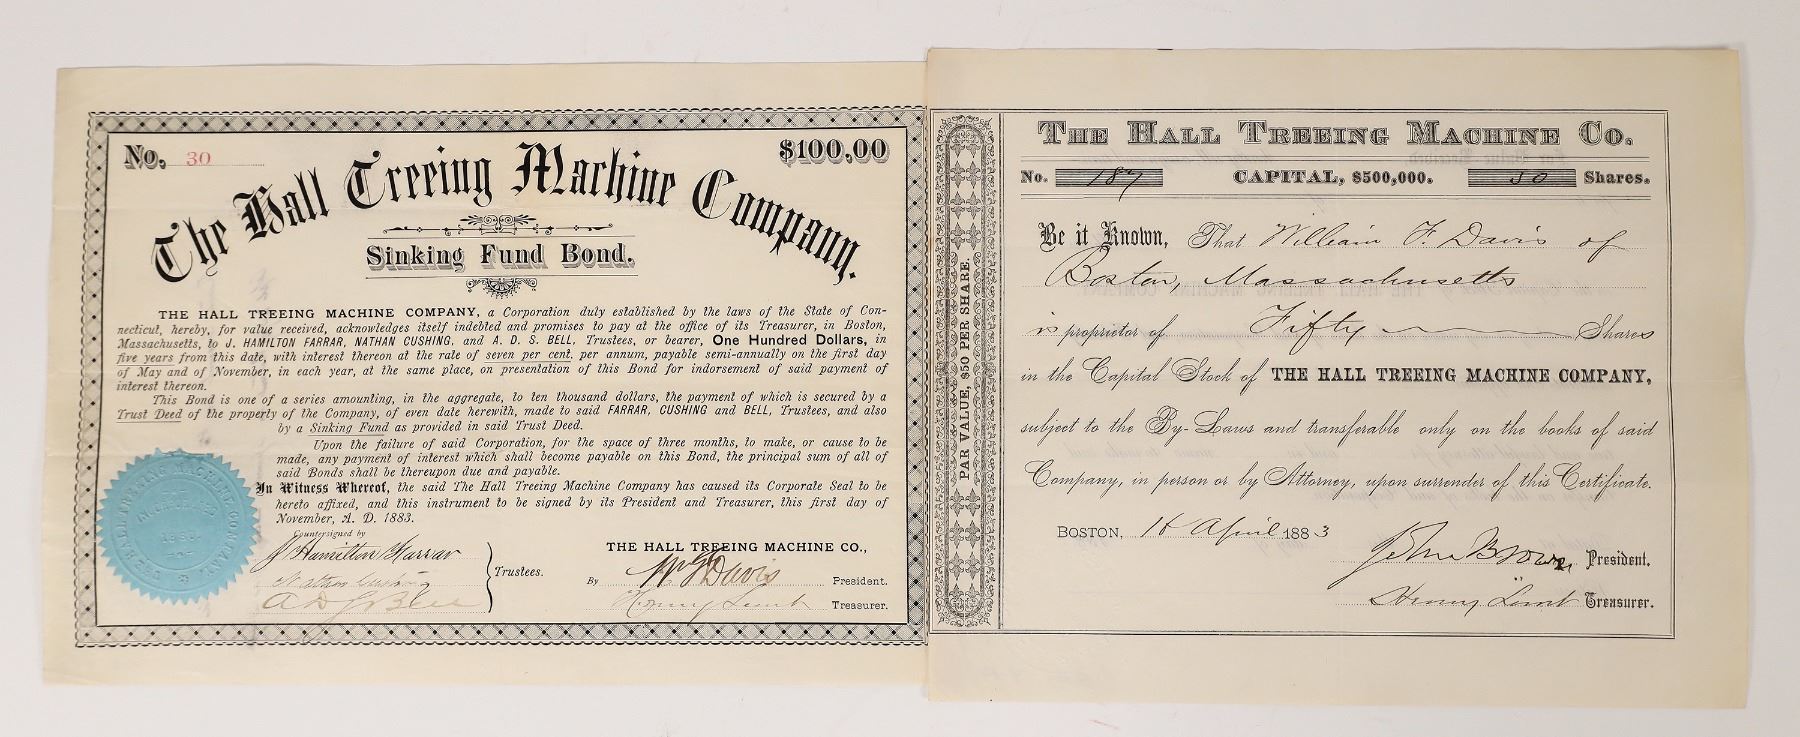 No. 30
$100.00
The Hall Treeing Machine Company.
Sinking Fund Bond.
THE HALL TREEING MACHINE COMPANY, a Corporation duly established by the laws of the State of Con-
necticut, hereby, for value received, acknowledges itself indebted and promises to pay at the office of its Treasurer, in Boston,
Massachusetts, to J. HAMILTON FARRAR, NATHAN CUSHING, and A. D. S. BELL, Trustees, or bearer, One Hundred Dollars, in
five years from this date, with interest thereon at the rate of seven per cent. per annum, payable semi-annually on the first day
of May and of November, in each year, at the same place, on presentation of this Bond for indorsement of said payment of
interest thereon.
This Bond is one of a series amounting, in the aggregate, to ten thousand dollars, the payment of which is secured by a
Trust Deed of the property of the Company, of even date herewith, made to said FARRAR, CUSHING and BELL, Trustees, and also
by a Sinking Fund as provided in said Trust Deed.
Upon the failure of said Corporation, for the space of three months, to make, or cause to be
made, any payment of interest which shall become payable on this Bond, the principal sum of all of
said Bonds shall be thereupon due and payable.
In Witness Whereof, the said The Hall Treeing Machine Company has caused its Corporate Seal to be
hereto affixed, and this instrument to be signed by its President and Treasurer, this first day of
November, A. D. 1883.
Countersigned by
J Hamilton Farrar
Nathan Cushing
A D S Bell
Trustees.
THE HALL TREEING MACHINE CO.,
By Wm F Davis President.
Henry Lunt Treasurer.
THE HALL TREEING MACHINE COMPANY
PAR VALUE, $50 PER SHARE.
THE HALL TREEING MACHINE CO.
No. 187 CAPITAL, $500,000. 50 Shares.
Be it Known, That William F. Davis of
Boston, Massachusetts
is proprietor of Fifty Shares
in the Capital Stock of THE HALL TREEING MACHINE COMPANY,
subject to the By-Laws and transferable only on the books of said
Company, in person or by Attorney, upon surrender of this Certificate.
BOSTON, April 1883
John Brown President.
Henry Lunt Treasurer.